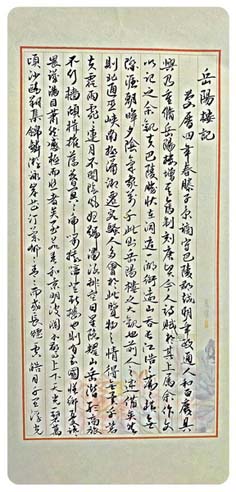 岳陽樓記
慶曆四年春滕子京謫守巴陵郡越明年政通人和百廢具
興乃重修岳陽樓增其舊制刻唐賢今人詩賦於其上屬余作文
以記之余觀夫巴陵勝狀在洞庭一湖銜遠山吞長江浩浩湯湯橫無
際涯朝暉夕陰氣象萬千此則岳陽樓之大觀也前人之述備矣然
則北通巫峽南極瀟湘遷客騷人多會於此覽物之情得無異乎若
夫霪雨霏霏連月不開陰風怒號濁浪排空日星隱耀山岳潛形商旅
不行檣傾楫摧薄暮冥冥虎嘯猿啼登斯樓也則有去國懷鄉憂讒
畏譏滿目蕭然感極而悲者矣至若春和景明波瀾不驚上下天光一碧萬
頃沙鷗翔集錦鱗游泳岸芷汀蘭郁郁青青而或長煙一空皓月千里浮光